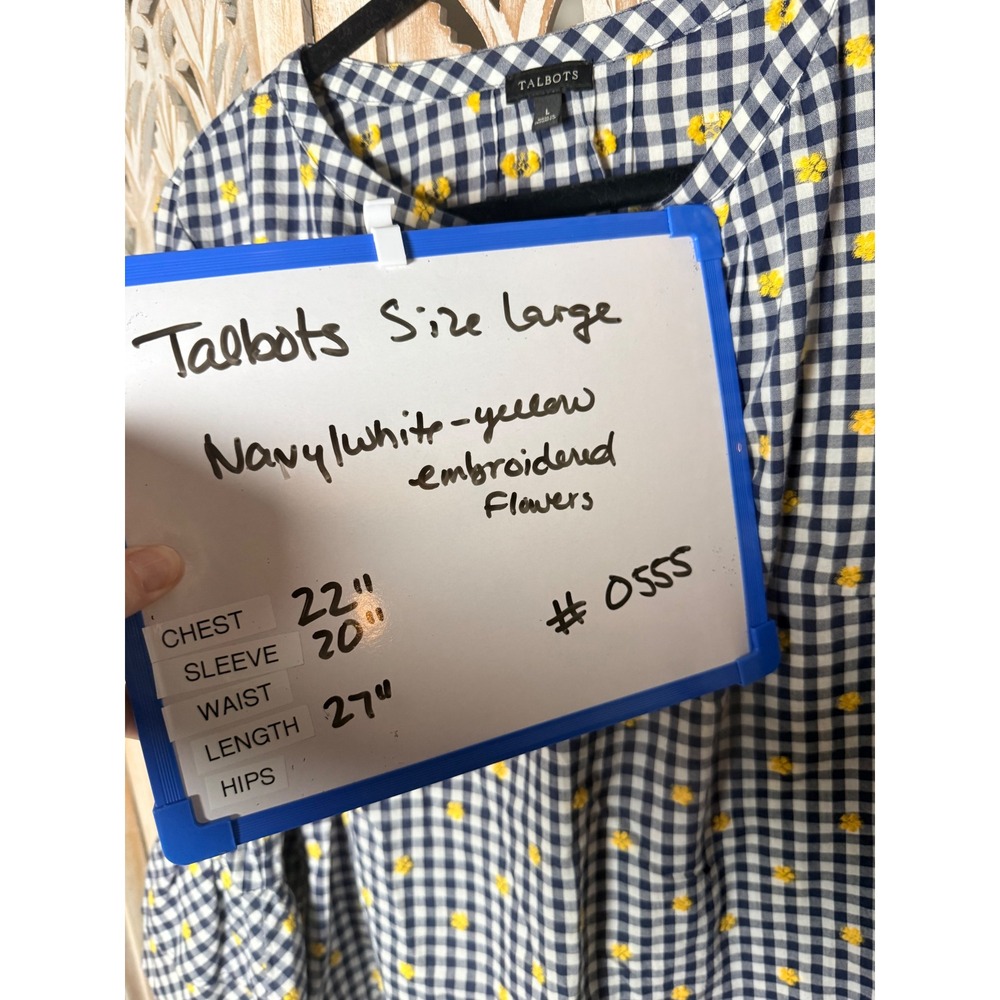 TALBOTS
L
Talbots Size Large
Navy/white-yellow
embroidered
Flowers
# 0555
CHEST 22"
SLEEVE 20"
WAIST
LENGTH 27"
HIPS